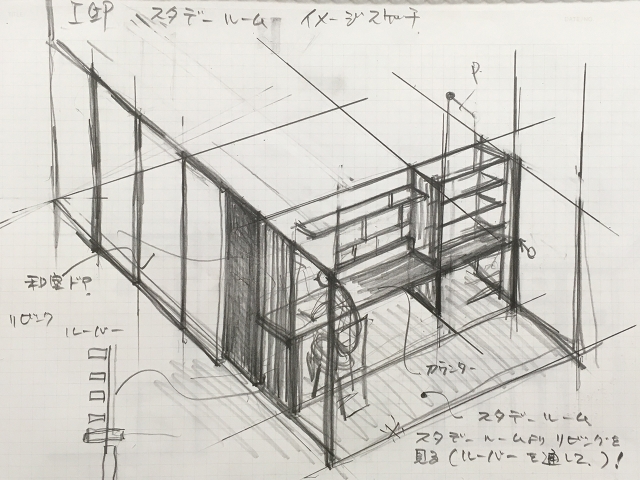 工邸 スタデールーム イメージスケッチ
P.
和室ド?
リビング
ルーバー
カウンター
スタデールーム
スタデールームよりリビングを
見る(ルーバーを通して.)!